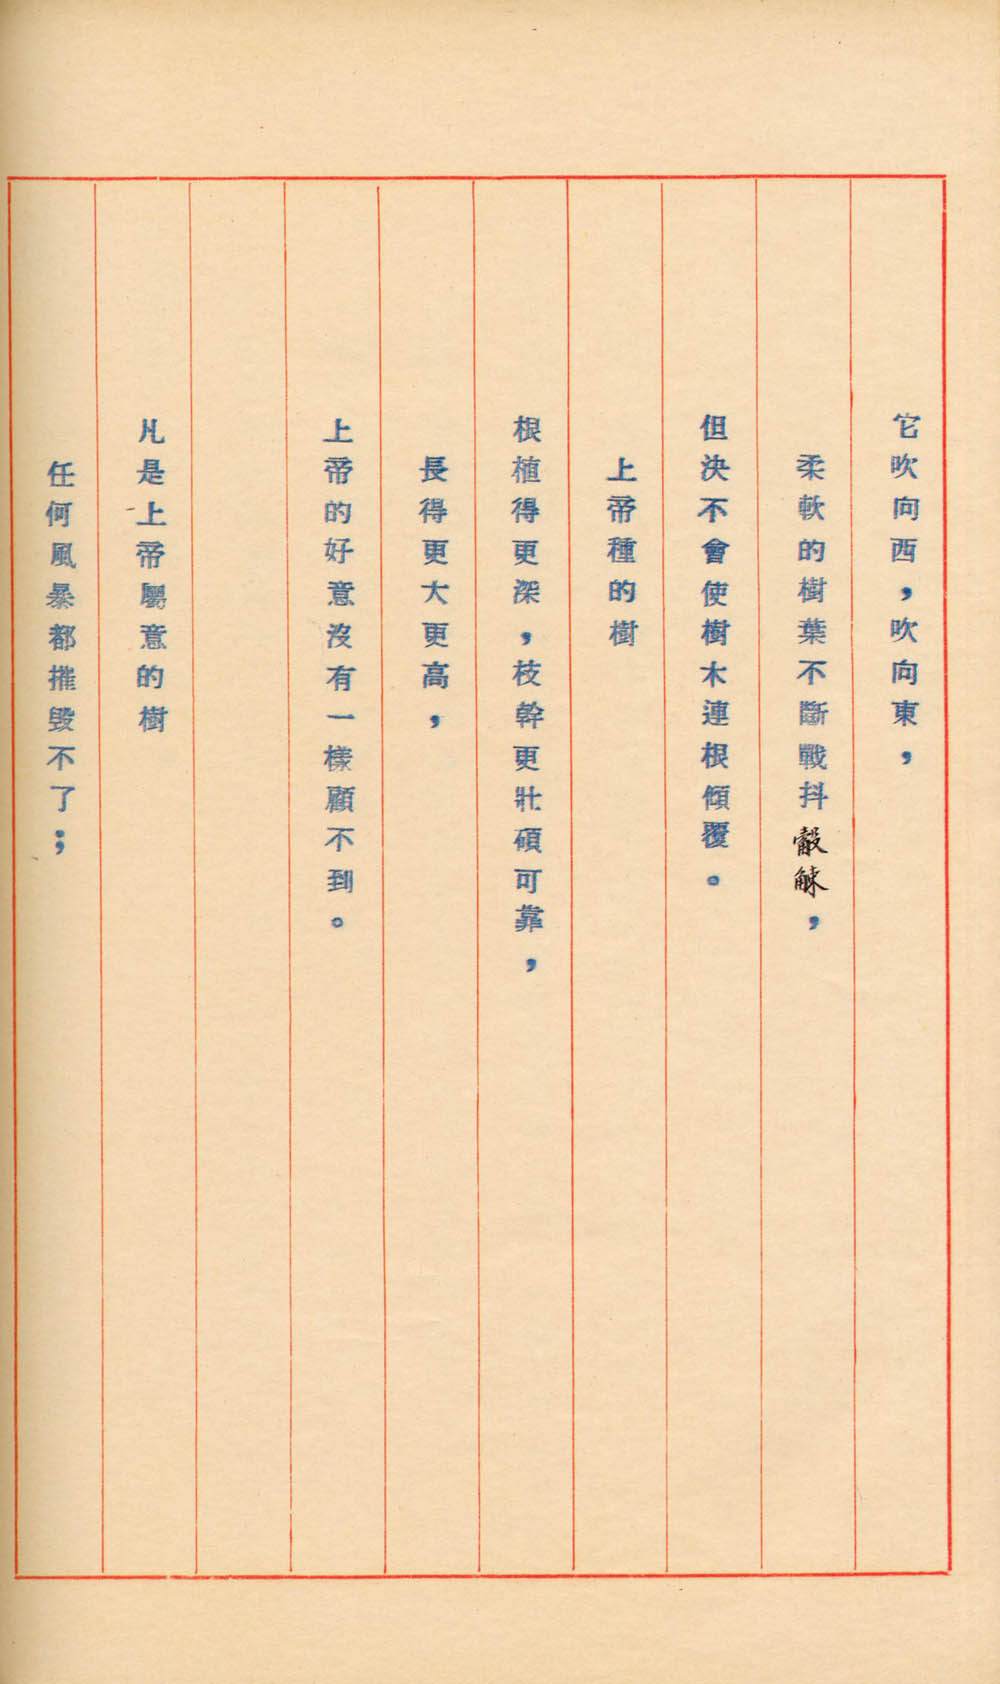 它吹向西，吹向東，
柔軟的樹葉不斷戰抖觳觫，
但決不會使樹木連根傾覆。
上帝種的樹
根植得更深，枝幹更壯碩可靠，
長得更大更高，
上帝的好意沒有一樣顧不到。
凡是上帝屬意的樹
任何風暴都摧毀不了；